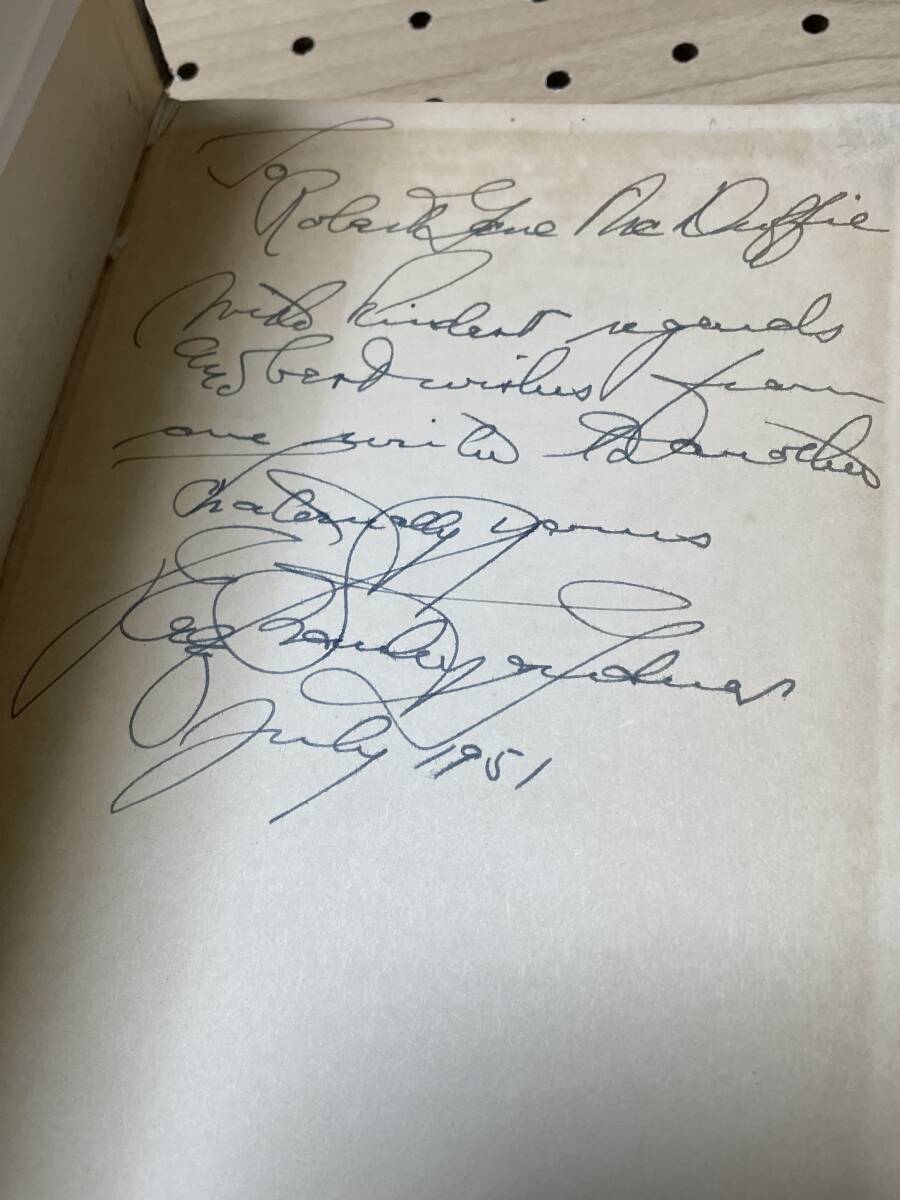 To
Robert Gene MacDuffie
With kindest regards
and best wishes from
one writer to another
Fraternally yours
July 1951